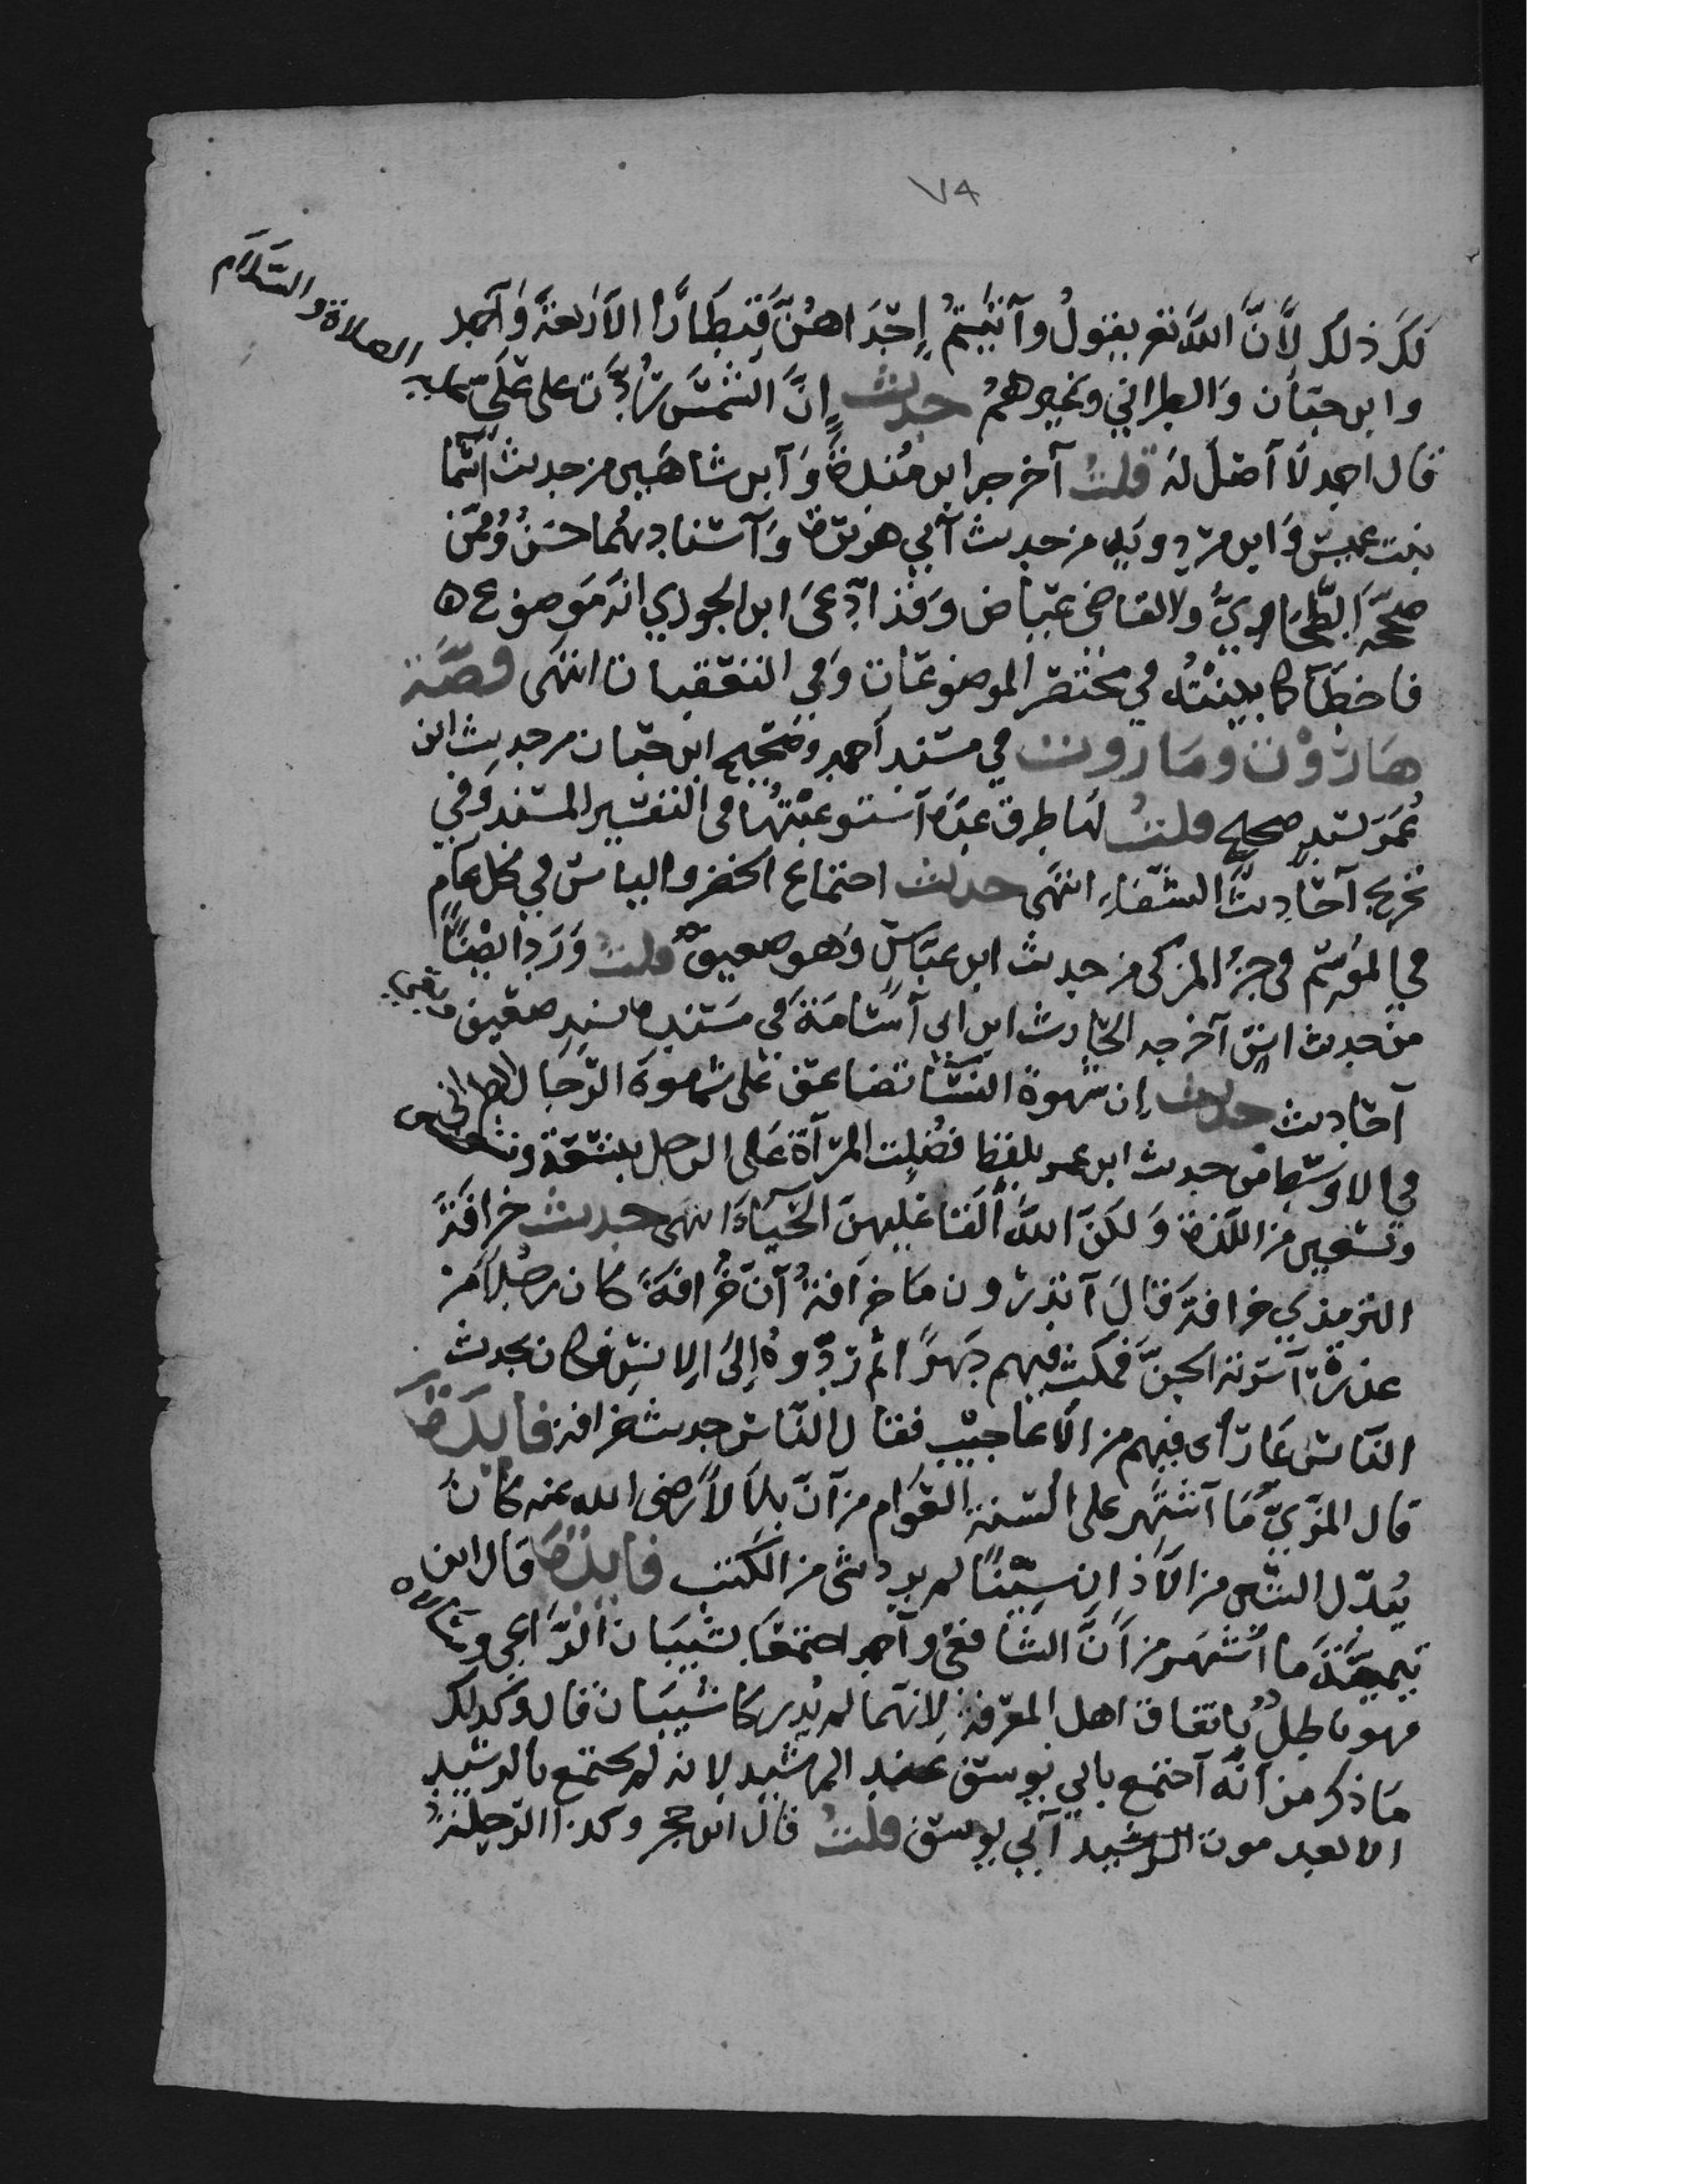 ٧٤
لك ذلك لان الله تعالى يقول وآتيتم إحداهن قنطارا الاربعة وأحمد
وابن حبان والطبراني وغيرهم حديث ان الشمس ردت على علي عليه الصلاة والسلام
قال احمد لا أصل له قلت أخرجه ابن مندة وابن شاهين من حديث أسما
بنت عميس وابن مردويه من حديث أبي هريرة وأسنادهما حسن وممن
صححه الطحاوي والقاضي عياض وقد ادعى ابن الجوزي انه موضوع ه
فاخطأ كما بينته في مختصر الموضوعات وفي التعقبات انتهى قصة
هاروت وماروت في مسند أحمد وصحيح ابن حبان من حديث ابن
عمر بسند صحيح قلت لها طرق عدة استوعبتها في التفسير المسند وفي
تخريج أحاديث الشفاء انتهى حديث اجتماع الخضر والياس في كل عام
في الموسم في جزء المزكى من حديث ابن عباس وهو ضعيف قلت ورد ايضا
من حديث انس أخرجه الحارث ابن ابي أسامة في مسنده بسند ضعيف
أحاديث حديث إن شهوة النسا تضاعف على شهوة الرجال الطبراني
في الاوسط من حديث ابن عمر بلفظ فضلت المرأة على الرجل بتسعة
وتسعين من اللذة ولكن الله ألقا عليهن الحياء انتهى حديث خرافة
الترمذي خرافة قال أتدرون ما خرافة أن خرافة كان رجلا من
عذرة أسرته الجن فمكث فيهم دهرا ثم ردوه إلى الانس فكان يحدث
الناس عا رأى فيهم من الاعاجيب فقال الناس حديث خرافة فايدة
قال المزي ما أشتهر على السنة العوام من أن بلالا رضى الله عنه كان
يبدل الشين من الأذان سينا لم يرد شى من الكتب فايدة قال ابن
تيمية ما أشتهر من أن الشافعى وأحمد اجتمعا بشيبان الراعي وسألاه
فهو باطل باتفاق اهل المعرفة لانهما لم يدركا شيبان قال وكذلك
ما ذكر من أنه أجتمع بابي يوسف عند الرشيد لانه لم يجتمع بالرشيد
الا بعد موت الرشيد أبي يوسف قلت قال ابن حجر وكذا الرحلة